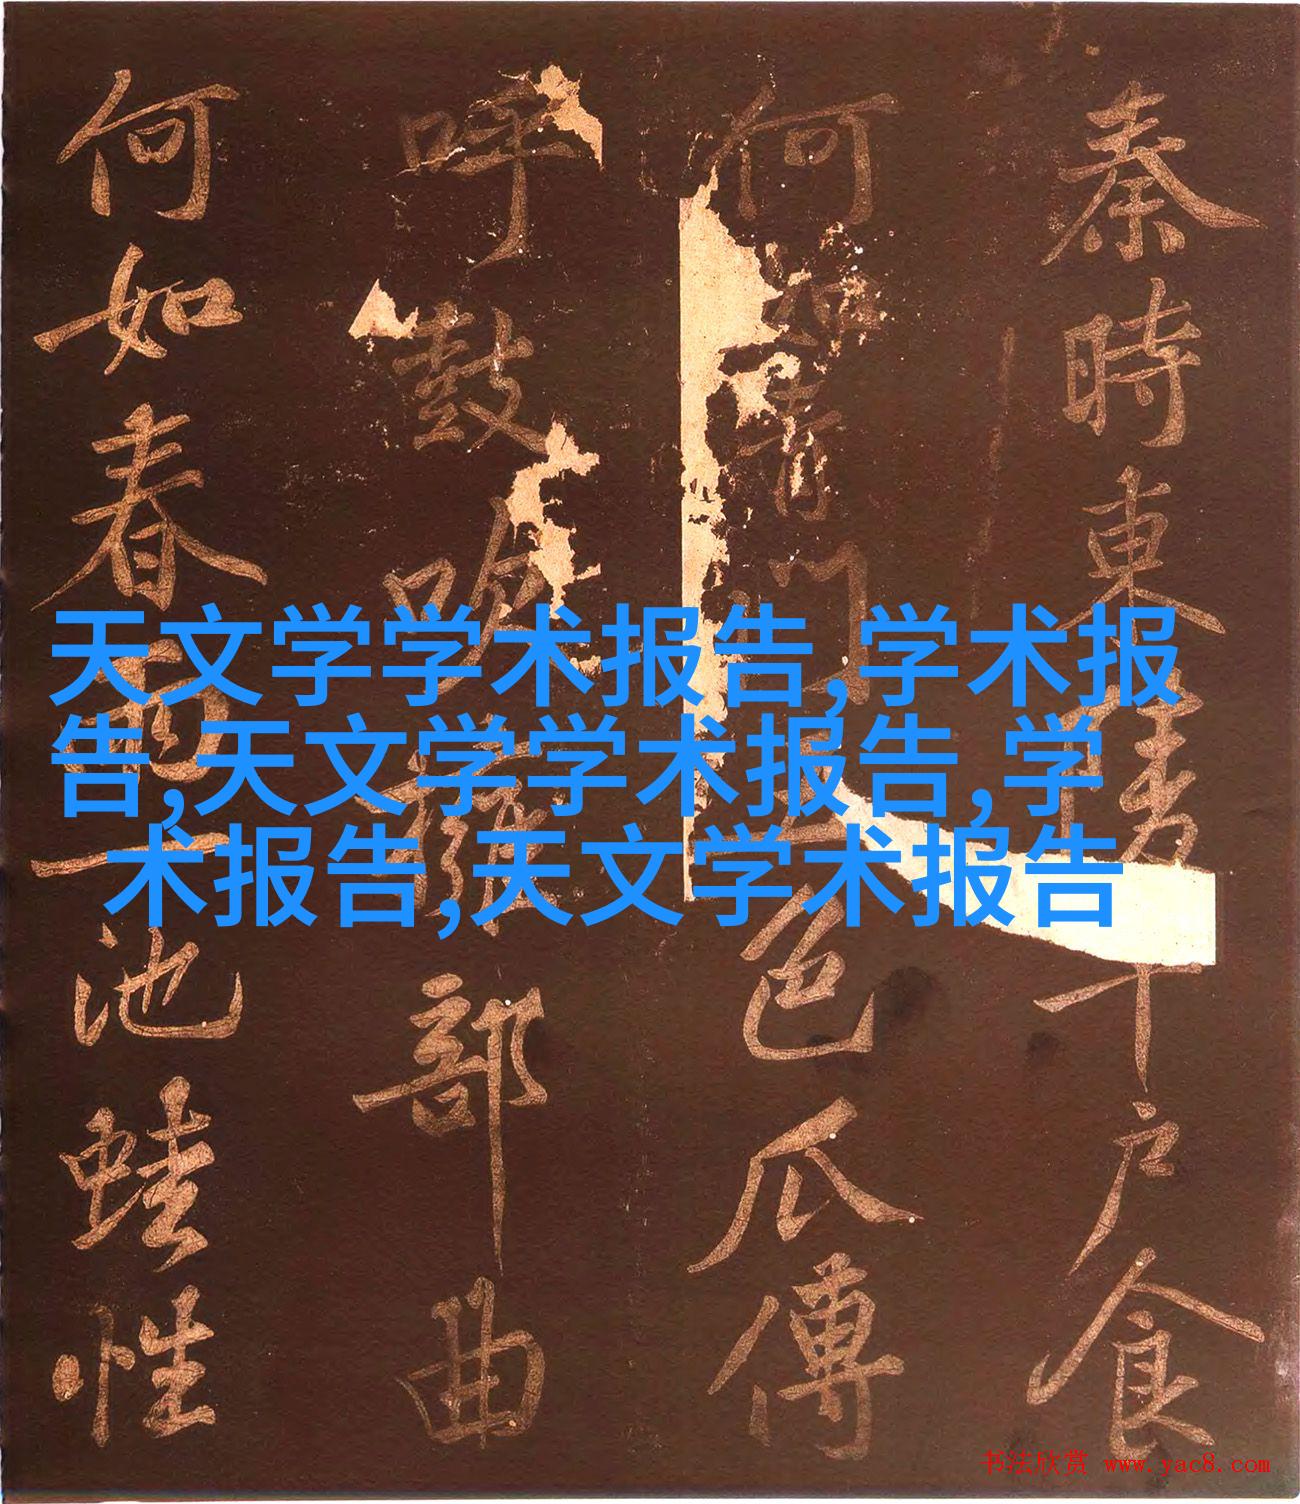 天文学学术报告,学术报
告,天文学学术报告,学
术报告,天文学术报告
秦時東陵千户食
何如青門五色瓜傳
呼鼓吹擁部曲
何如春雨一池蛙性
书法欣赏 www.yac8.com